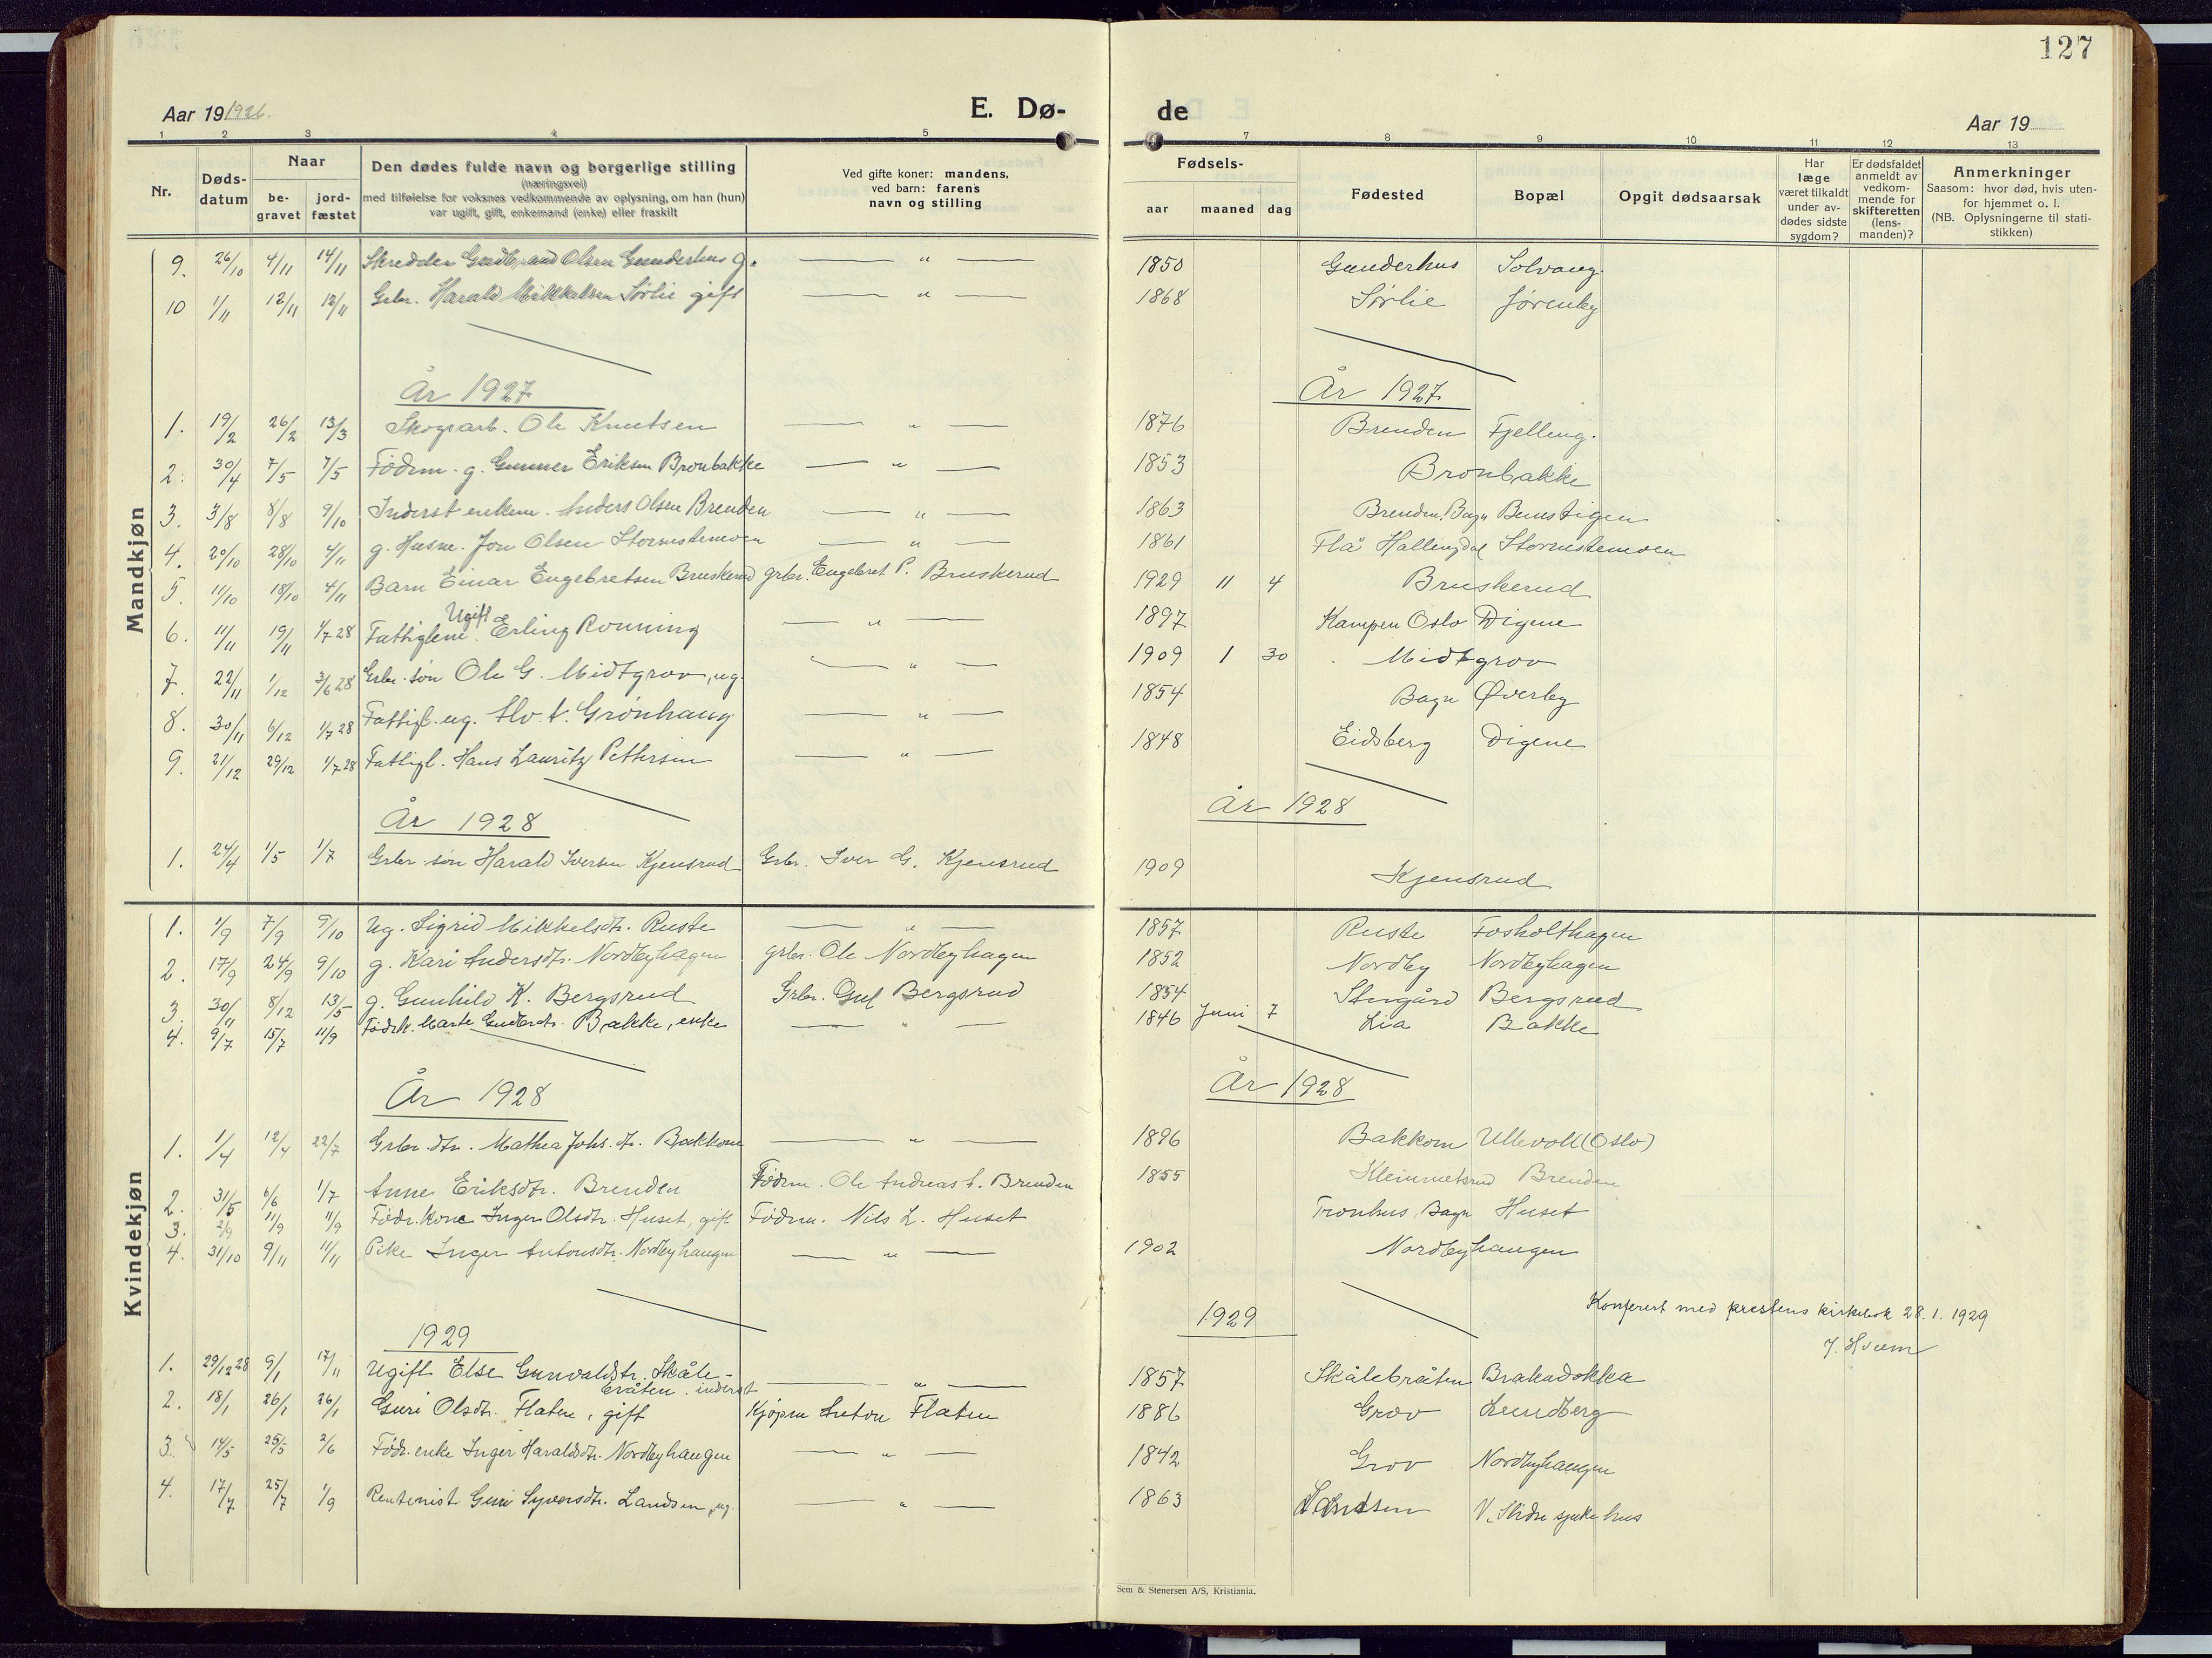 127
Aar 19 1926.
E. Dø-
de
Aar 19
1 2 3 4 5 7 8 9 10 11 12 13
Nr.
Døds-
datum
Naar
be-
gravet
jord-
fæstet
Den dødes fulde navn og borgerlige stilling
(næringsvei)
med tilføielse for voksnes vedkommende av oplysning, om han (hun)
var ugift, gift, enkemand (enke) eller fraskilt
Ved gifte koner: mandens,
ved barn: farens
navn og stilling
Fødsels-
aar maaned dag
Fødested
Bopæl
Opgit dødsaarsak
Har
læge
været tilkaldt
under av-
dødes sidste
sygdom?
Er dødsfaldet
anmeldt av
vedkom-
mende for
skifteretten
(lens-
manden)?
Anmerkninger
Saasom: hvor død, hvis uten-
for hjemmet o. l.
(NB. Oplysningerne til stati-
stikken)
Mandkjøn
9. 26/10 4/11 14/11 Skredder Gudbrand Olsen Gunderhus g. — " — 1850 Gunderhus Solvang.
10 1/11 12/11 12/11 Grbr. Harald Mikkelsen Sørlie gift — " — 1868 Sørlie Jørenby
År 1927 År 1927
1. 19/2 26/2 13/3 Skogsarb. Ole Knutsen — " — 1876 Brenden Fjelleng.
2. 30/4 7/5 7/5 Fødrm. g. Gunner Eriksen Bronbakke — " — 1853 Bronbakke
3. 3/8 8/8 9/10 Inderst enkem. Anders Olsen Brenden — " — 1863 Brenden, Bagn
4. 20/10 28/10 4/11 g. Husm. Jon Olsen Stornstenmoen — " — 1861 Flå Hallingdal Stornstenmoen
5. 11/10 18/10 4/11 Barn Einar Engebretsen Bruskerud grbr. Engebret P. Bruskerud 1929 11 4 Bruskerud
6. 11/11 19/11 1/7 28 Fattiglem. Ugift Erling Rønning — " — 1897 Kampen Oslo Digene
7. 22/11 1/12 3/6 28 Grbr. søn Ole G. Midtgrov, ug. — " — 1909 1 30 Midtgrov
8. 30/11 6/12 1/7 28 Fattigl. ug. Grønhaug — " — 1854 Bagn Øverby
9. 21/12 29/12 1/7 28 Fattigl. Hans Lauritz Pettersen — " — 1848 Eidsberg Digene
År 1928 År 1928
1. 24/4 1/5 1/7 Grbr. søn Harald Iversen Kjensrud Grbr. Iver G. Kjensrud 1909 Kjensrud
Kvindekjøn
1. 1/9 7/9 9/10 Ug. Sigrid Mikkelsdtr. Ruste — " — 1857 Ruste Fosholthagen
2. 17/9 24/9 9/10 g. Kari Andersdtr. Nordbyhagen grbr. Ole Nordbyhagen 1852 Nordby Nordbyhagen
3. 30/11 8/12 13/5 g. Gunhild K. Bergsrud Grbr. Gul Bergsrud 1854 Stugård Bergsrud
4. 9/7 15/7 11/9 Fødrk. Marte Gudbrdtr. Bakke, enke — " — 1846 Juni 7 Lia Bakke
År 1928 År 1928
1. 1/4 12/4 22/7 Grbr. dtr. Mathea Johs. dtr. Bakkom — " — 1896 Bakkom Ullevoll (Oslo)
2. 31/5 6/6 1/7 Anne Eriksdtr. Brenden Fødrm. Ole Andreas A. Brenden 1855 Kleimmetsrud Brenden
3. 2/9 11/9 11/9 Fødr. kone Inger Olsdtr. Huset, gift Fødrm. Nils L. Huset Tronhus, Bagn Huset
4. 31/10 9/11 11/11 Pike Inger Antonsdtr. Nordbyhaugen — " — 1902 Nordbyhaugen
Konferert med prestens kirkebok 28. 1. 1929
J. Hvem
1929 1929
1. 29/12 28 9/1 17/11 Ugift Else Gunvaldsdtr. Skåle-
bråten. inderst — " — 1857 Skålebråten Brakadokka
2. 18/1 26/1 26/1 Guri Olsdtr. Flaten, gift Kjøpm Anton Flaten 1886 Grov Lundberg
3. 14/5 25/5 2/6 Fødr. enke Inger Haraldsdtr. Nordbyhaugen — " — 1842 Grov Nordbyhaugen
4. 17/7 25/7 1/9 Rentenist Guri Syversdtr. Landsen, ug. — " — 1863 Landsen V. Slidre sjukehus
Sem & Stenersen A/S, Kristiania.